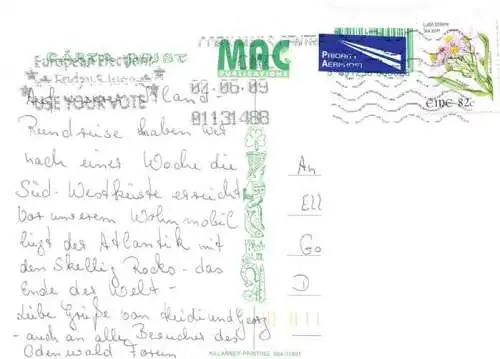 CÁRTA POIST
European Elections
Friday 5 June
USE YOUR VOTE
04-06-09
01131488
MAC
PUBLICATIONS
PRIORITY
AERPHOST
Éire 82c
Auf Irland-
Rundreise haben wir
nach einer Woche die
Süd-Westküste erreicht
Vor unserem Wohnmobil
liegt der Atlantik mit
den Skellig Rocks - das
Ende der Welt -
Liebe Grüße von Heidi und Georg
- auch an alle Besucher des
Odenwald Forum
An
Ell
Go
D
KILLARNEY PRINTING